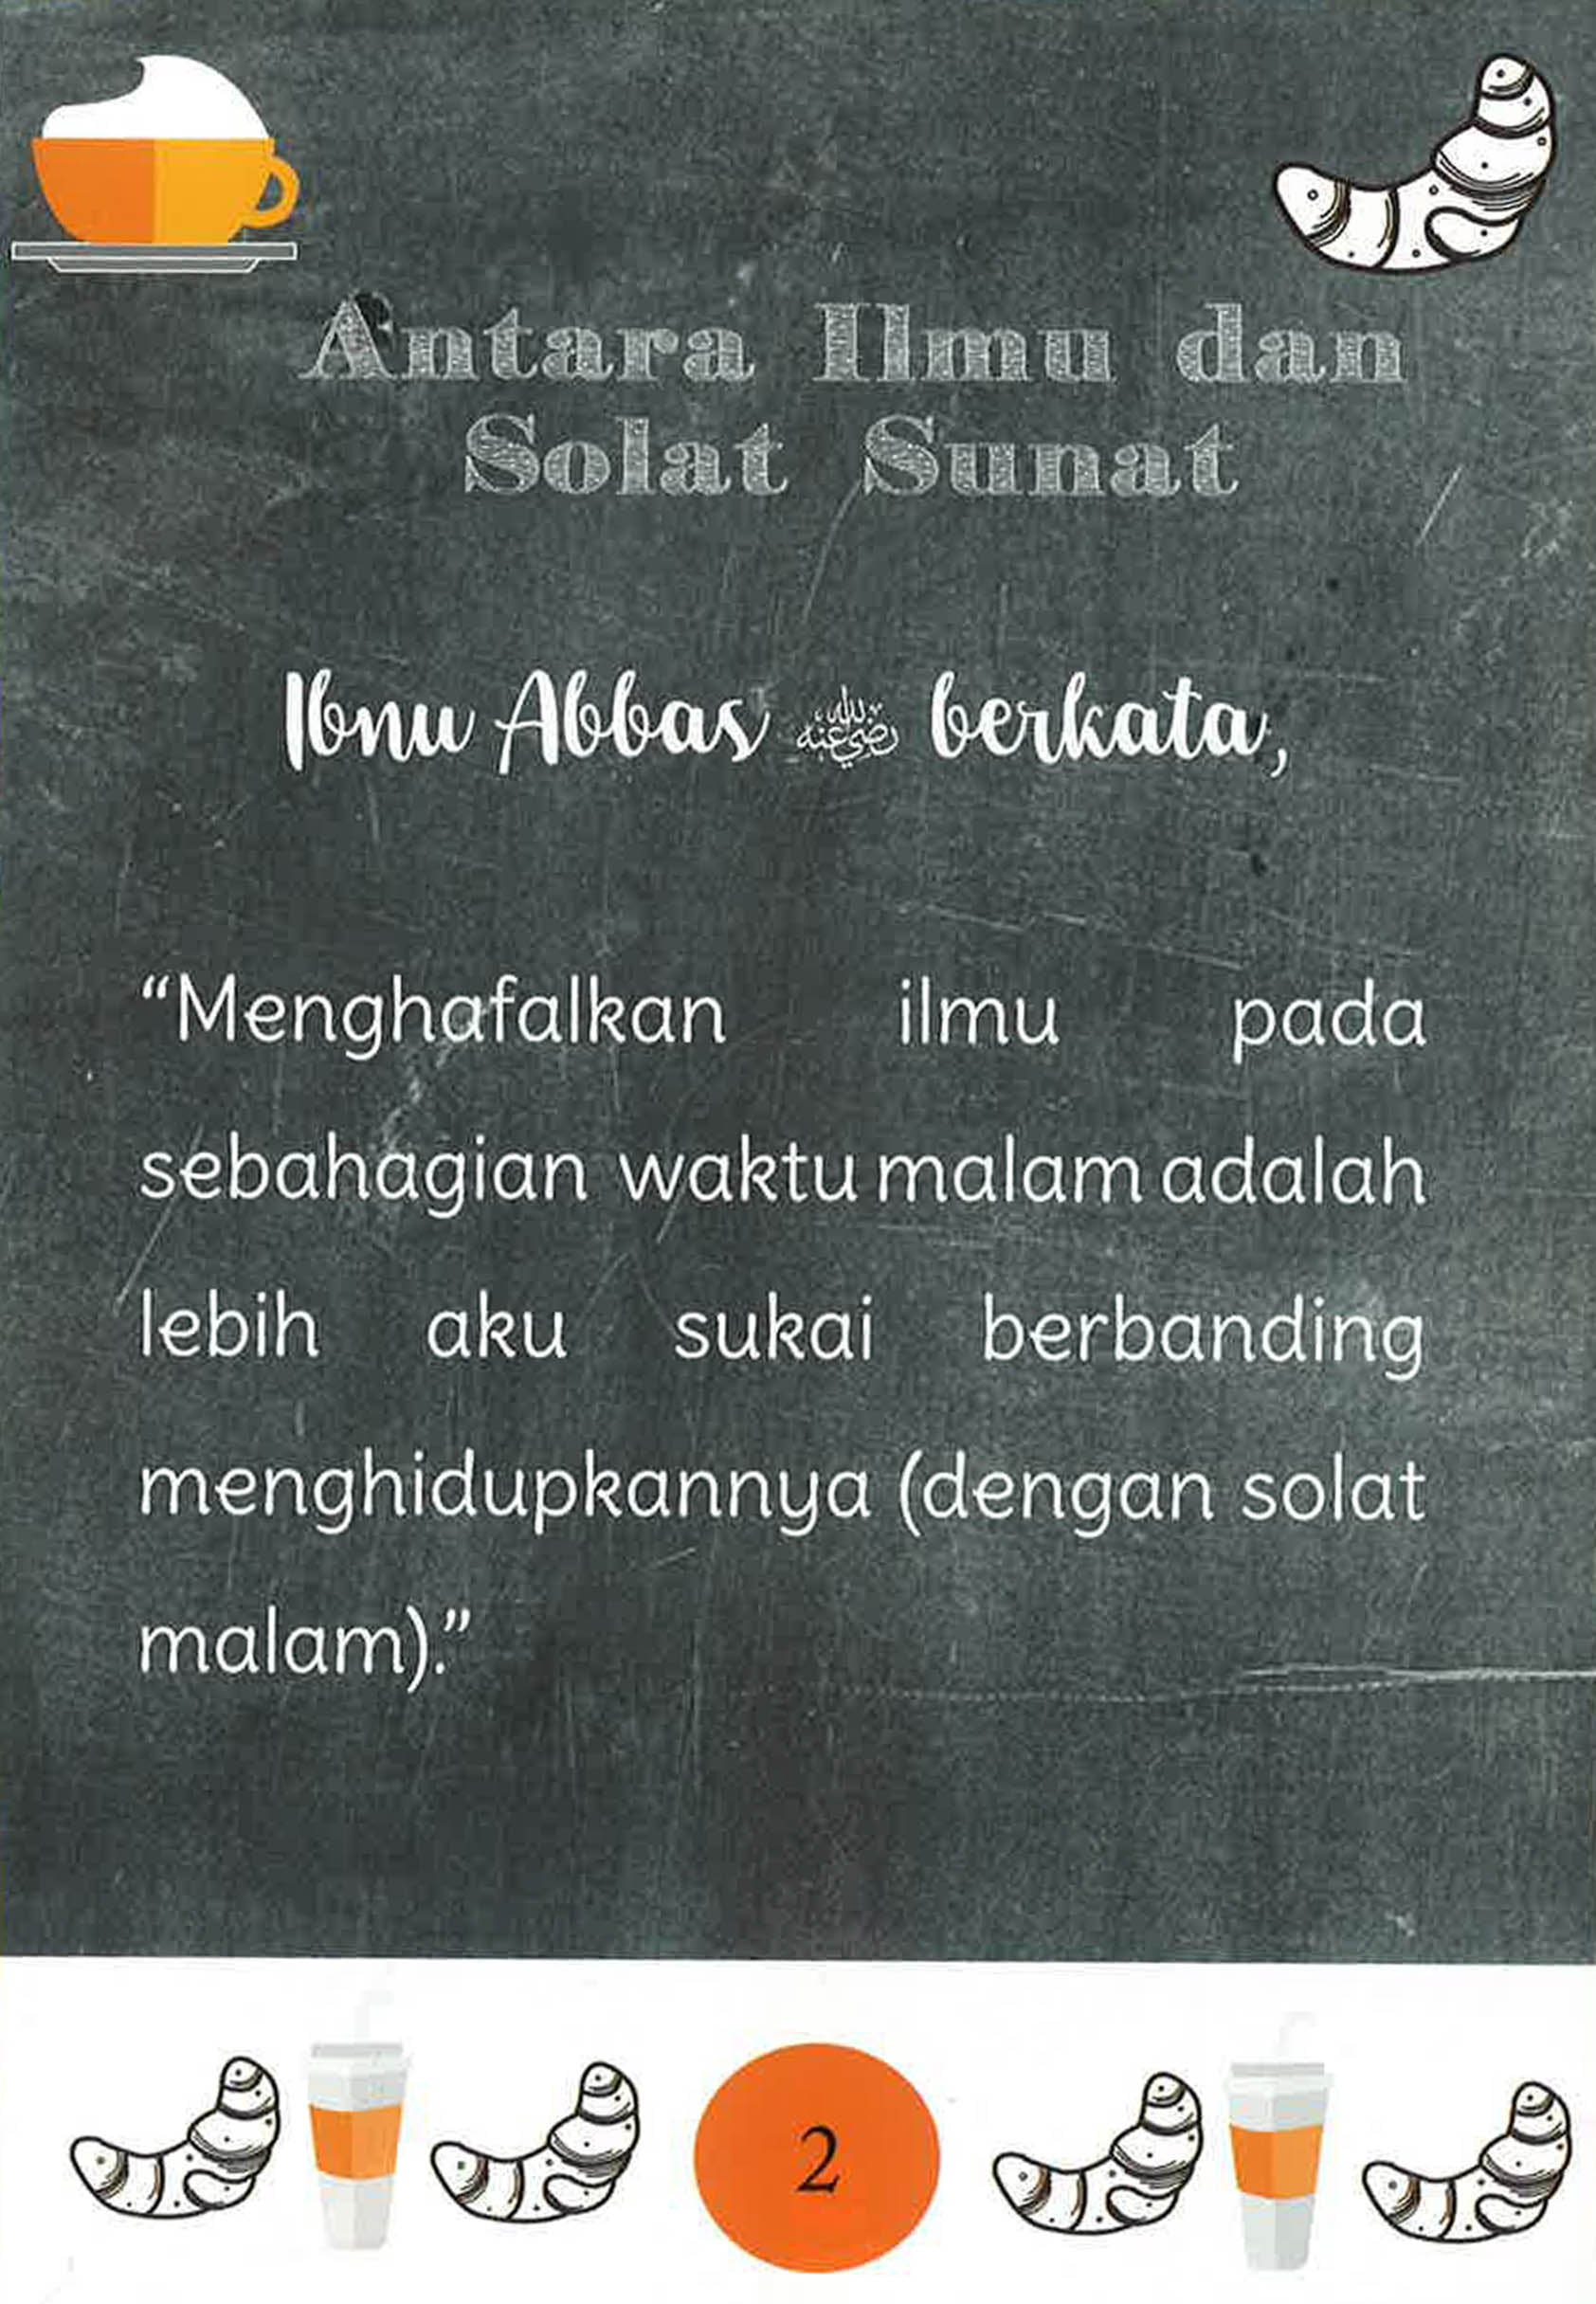 Antara Ilmu dan
Solat Sunat
Ibnu Abbas رضي الله عنه berkata,
“Menghafalkan ilmu pada
sebahagian waktu malam adalah
lebih aku sukai berbanding
menghidupkannya (dengan solat
malam).”
2